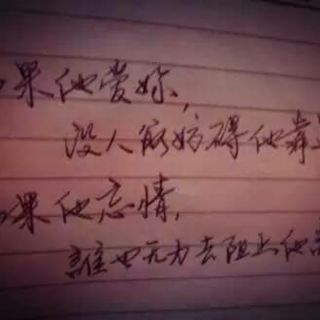 果他爱妳，
没人能妨碍他靠
果他忘情，
誰也无力去阻止他